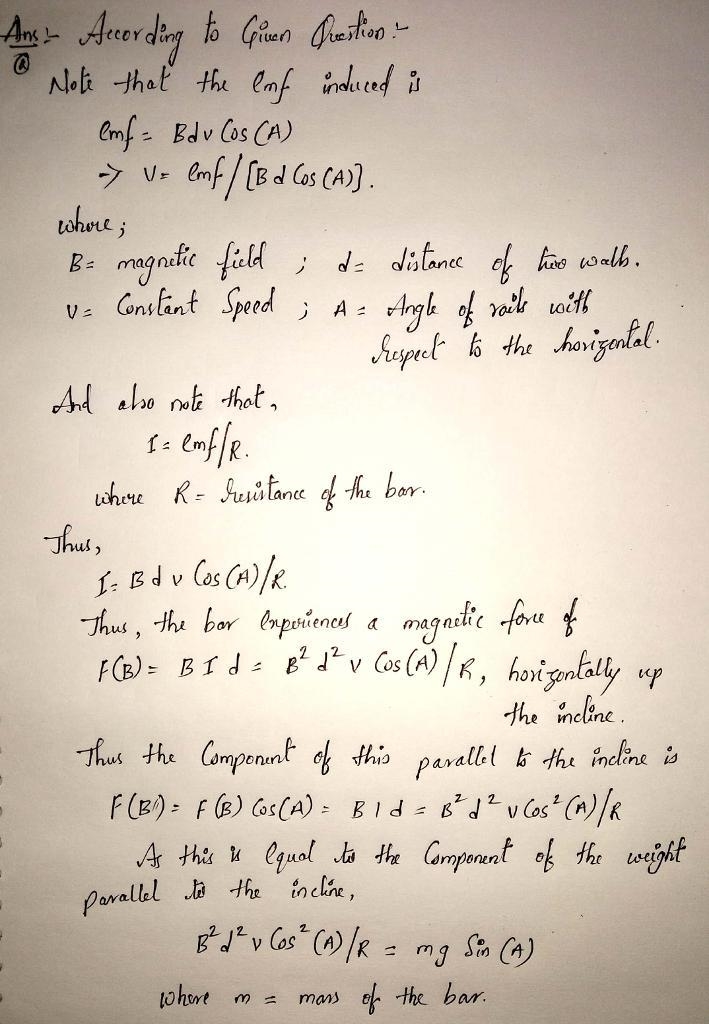 Ans :- According to Given Question :-
(a)
Note that the emf induced is
emf = Bdv Cos (A)
→ V = emf / [B d Cos (A)].
where ;
B = magnetic field ; d = distance of two walls.
V = Constant Speed ; A = Angle of rails with
respect to the horizontal.
And also note that,
I = emf/R.
where R = resistance of the bar.
Thus,
I = B d v Cos (A)/R.
Thus, the bar experiences a magnetic force of
F(B) = B I d = B² d² v Cos (A) / R, horizontally up
the incline.
Thus the Component of this parallel to the incline is
F(B//) = F(B) Cos(A) = B I d = B² d² v Cos² (A)/R
As this is equal to the Component of the weight
parallel to the incline,
B² d² v Cos² (A)/R = mg Sin (A)
where m = mass of the bar.